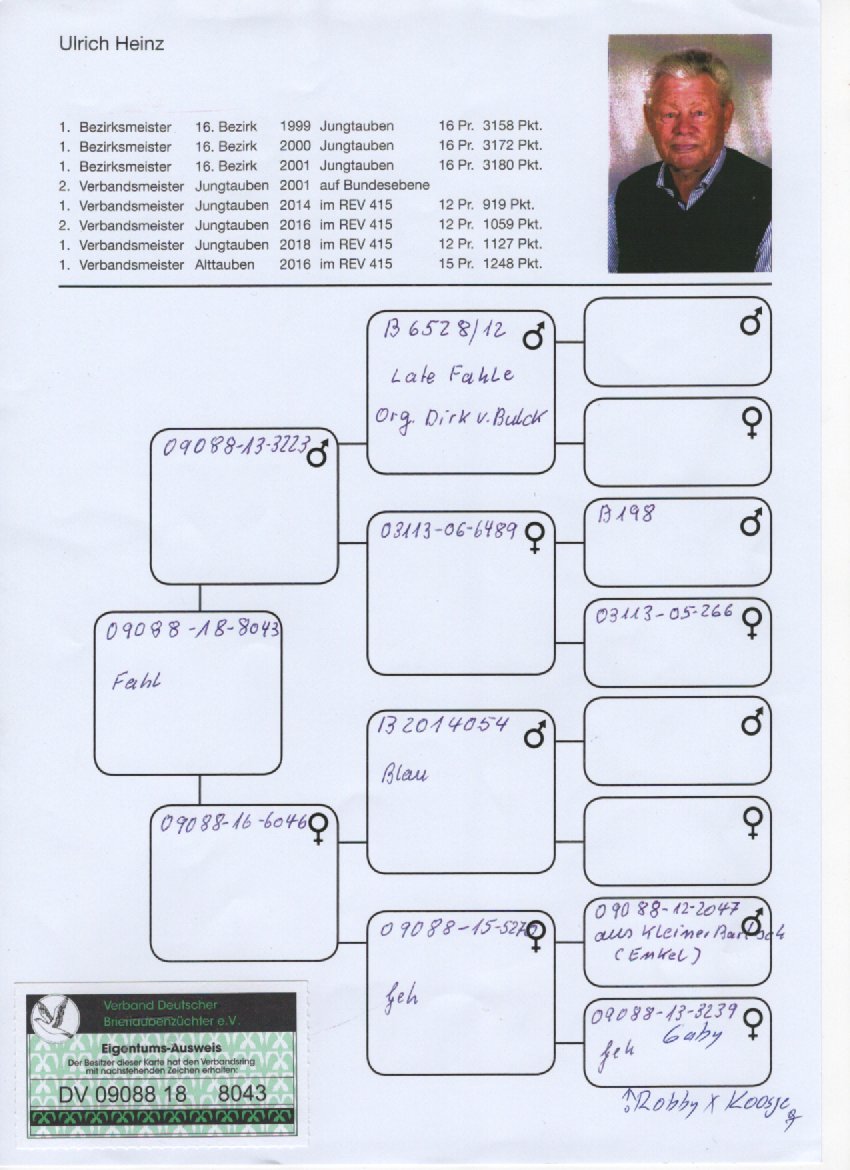 Ulrich Heinz
1. Bezirksmeister 16. Bezirk 1999 Jungtauben 16 Pr. 3158 Pkt.
1. Bezirksmeister 16. Bezirk 2000 Jungtauben 16 Pr. 3172 Pkt.
1. Bezirksmeister 16. Bezirk 2001 Jungtauben 16 Pr. 3180 Pkt.
2. Verbandsmeister Jungtauben 2001 auf Bundesebene
1. Verbandsmeister Jungtauben 2014 im REV 415 12 Pr. 919 Pkt.
2. Verbandsmeister Jungtauben 2016 im REV 415 12 Pr. 1059 Pkt.
1. Verbandsmeister Jungtauben 2018 im REV 415 12 Pr. 1127 Pkt.
1. Verbandsmeister Alttauben 2016 im REV 415 15 Pr. 1248 Pkt.
B 6528/12 ♂
Late Fahle
Org. Dirk v. Bulck
♂
♀
09088-13-3223 ♂
03113-06-6489 ♀
B198 ♂
03113-05-266 ♀
09088-18-8043
Fahl
B2014054 ♂
Blau
♂
♀
09088-16-6046 ♀
09088-15-527 ♀
geh
09088-12-2047 ♂
aus Kleiner
(Enkel)
09088-13-3239 ♀
Gaby
geh
Robby X Koosje
Verband Deutscher
Brieftaubenzüchter e.V.
Eigentums-Ausweis
Der Besitzer dieser Karte hat den Verbandsring
mit nachstehenden Zeichen erhalten:
DV 09088 18 8043